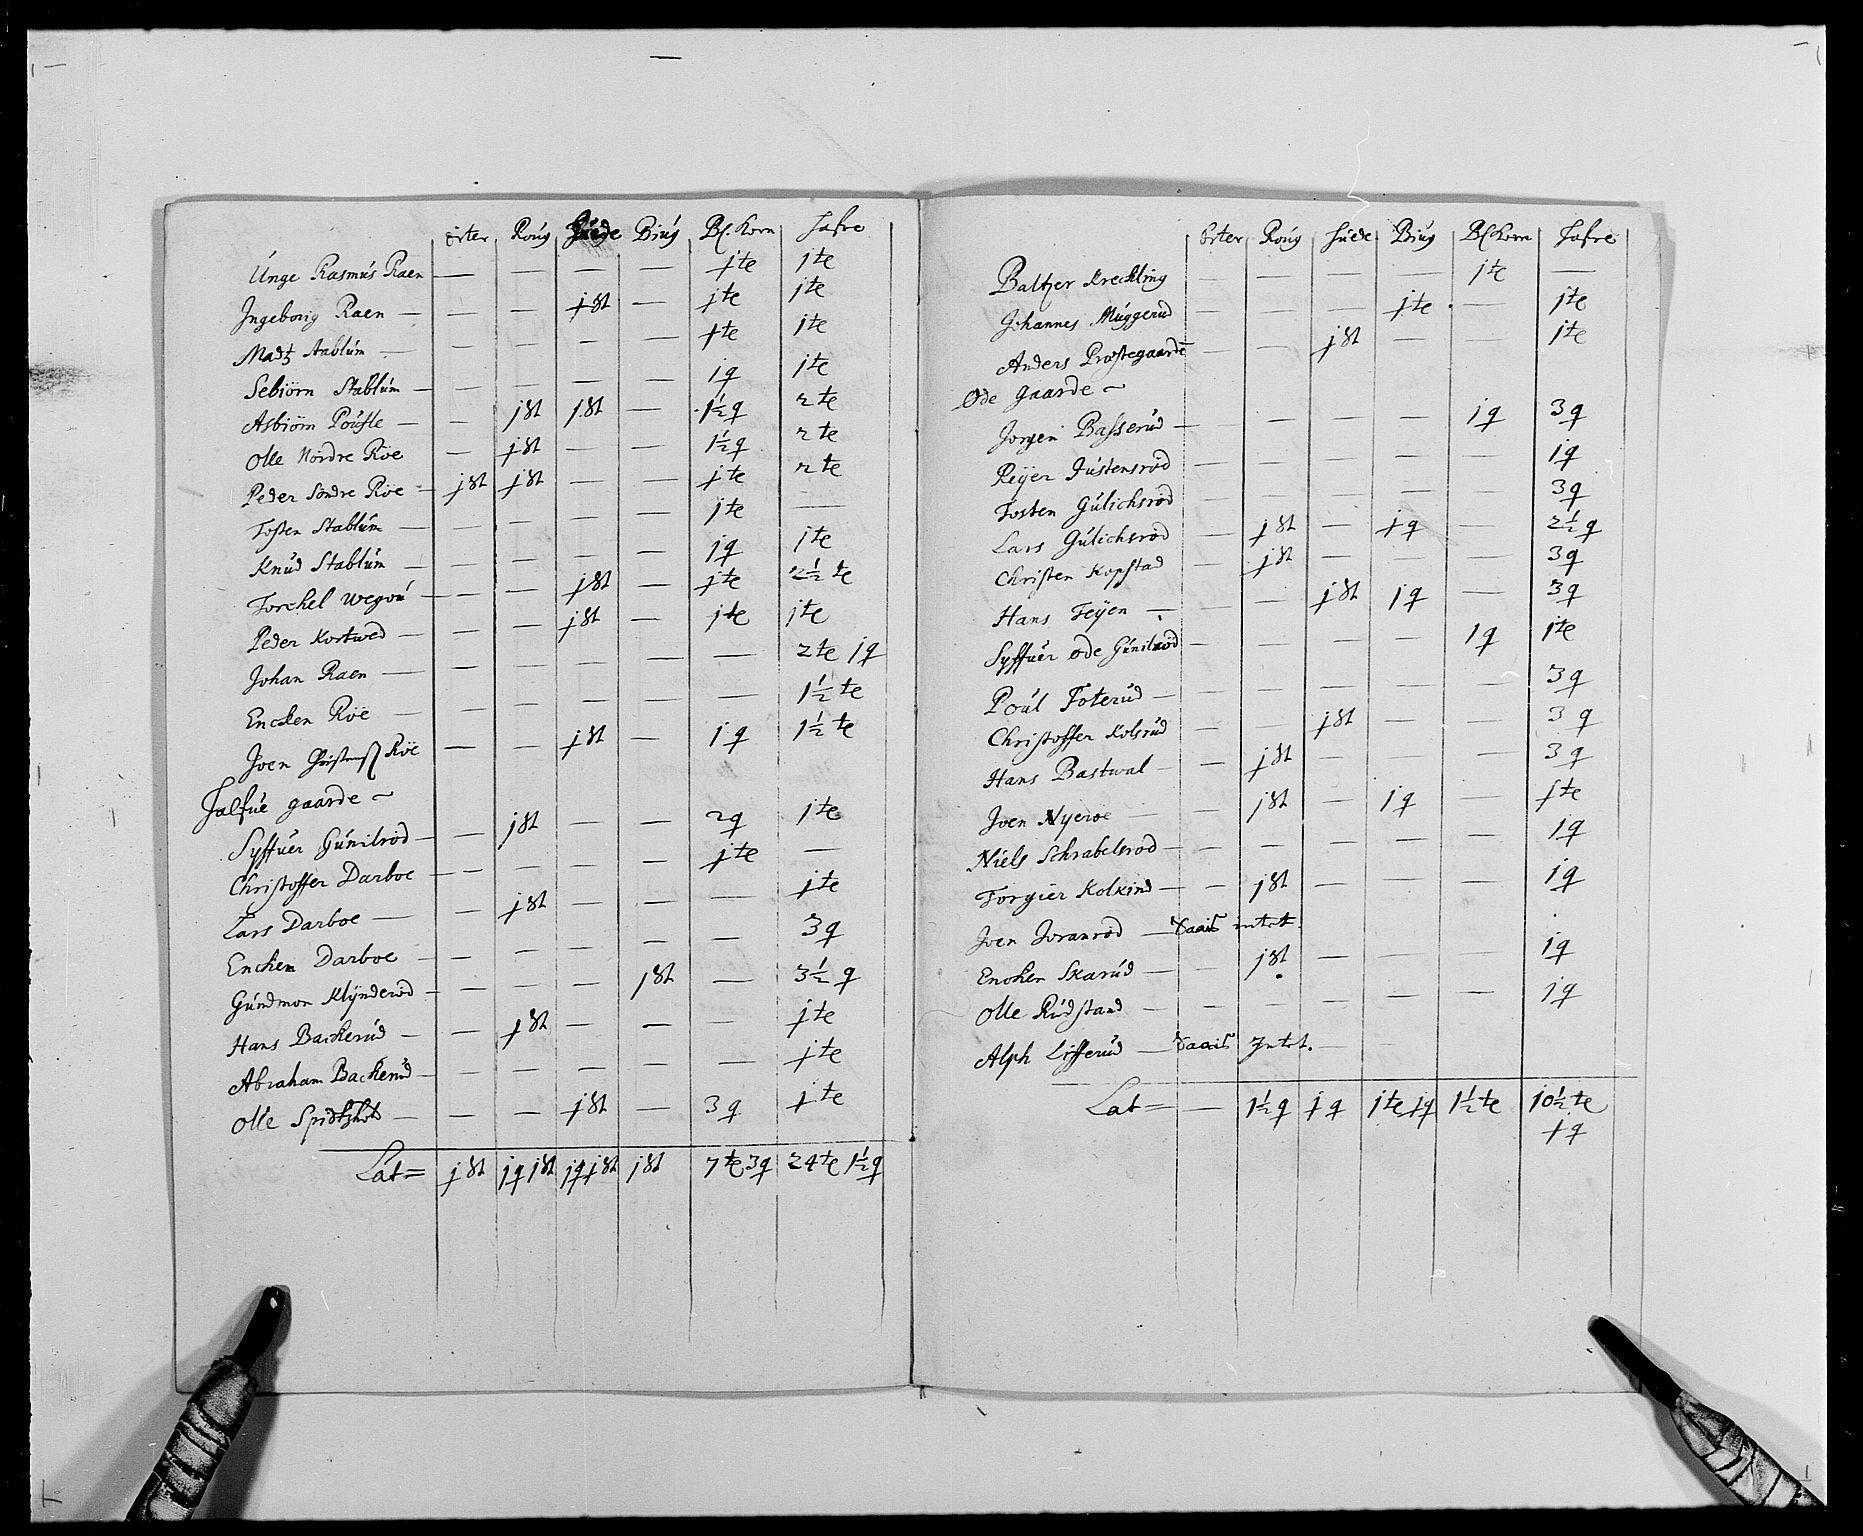 Erter Roug Huede Biug Bl: Korn Hafre
Unge Rasmus Raen — — — — — 1te 1te
Ingeborig Raen — — — j8t — jte 1te
Madtz Aablum — — — — — 1te 1te
Sebiörn Stablum — — — — — 1q 1te
Asbiörn Pousle — — j8t 1.8t — 1½q 2te
Olle Nordre Röe — j8t — — 1½q 2te
Peder Söndre Röe — j8t j8t — — jte 2te
Tosten Stablum — — — — — jte —
Knud Stablum — — — — — jq jte
Torchel Wegou — — — j8t — jte 2½ te
Peder Kortwed — — — j8t — jte jte
Johan Raen — — — — — — 2te 1q
Encken Röe — — — — — — 1½ te
Joen Röe — — j8t — 1q 1½ te
Halfue gaarde ~
Syffuer Gunilrod — — j8t — — 2q 1te
Christoffer Darboe — — — — — jte —
Lars Darboe — — j8t — — — jte
Encken Darboe — — — — — — 3q
Gundmon Klÿnderod — — — — j8t — 3½ q
Hans Backerud — — j8t — — — jte
Abraham Backerud — — — — — — jte
Olle — — — j8t — 3q jte
Lat= j8t jq j8t jq j8t j8t 7te 3q 24te 1½q
Erter Roug Huede Biug Bl Korn Hafre
Baltzer Kreckling — — — — 1te —
Johannes Muggerud — — — jte — 1te
Anders Prostegaarde — — j8t — — 1te
Ode gaarde ~
Jorgen Basserud — — — — 1q 3q
Reÿer Justensrod — — — — — 1q
Tosten Gulichsrod — — — — — 3q
Lars Gulichsrod — j8t — jq — 2½ q
Christen Kopstad — j8t — — — 3q
Hans Feÿen — — — j8t 1q — 3q
Syffuer ode Gunilrod — — — — 1q 1te
Poul Foterud — — — — — — 3q
Christoffer Kolsrud — — j8t — — 3q
Hans Bastwal — — j8t — — — 3q
Joen Nyeröe — — j8t — 1q — jte
Niels Schrabelsrod — — — — — — 1q
Torgier Kolkind — — j8t — — — 1q
Joen Joranrod — Saait intet.
Encken Skarud — — j8t — — — 1q
Olle Rudstand — — — — — — 1q
Alph Lifferud — Saait Intet. —
Lat= — 1½q jq 1te jq 1½te 10½te
jq